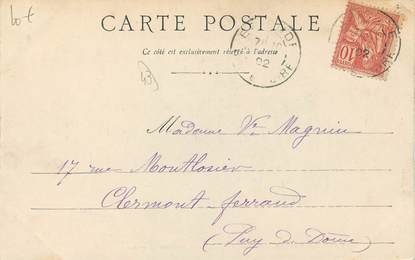 10 f
CARTE POSTALE
Ce côté est exclusivement réservé à l'adresse
43
02
02
10
Madame Vve Magnin
17 rue Montlosier
Clermont ferrand
(Puy de Dôme)